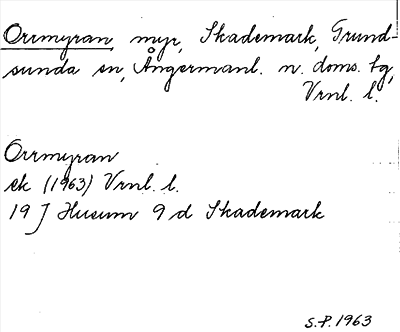 Orrmyran, myr, Skademark, Grund-
sunda sn, Ångermanl. n. doms. tg,
Vrnl. l.
Orrmyran
ek (1963) Vrnl. l.
19 J Husum 9 d Skademark
S.P. 1963